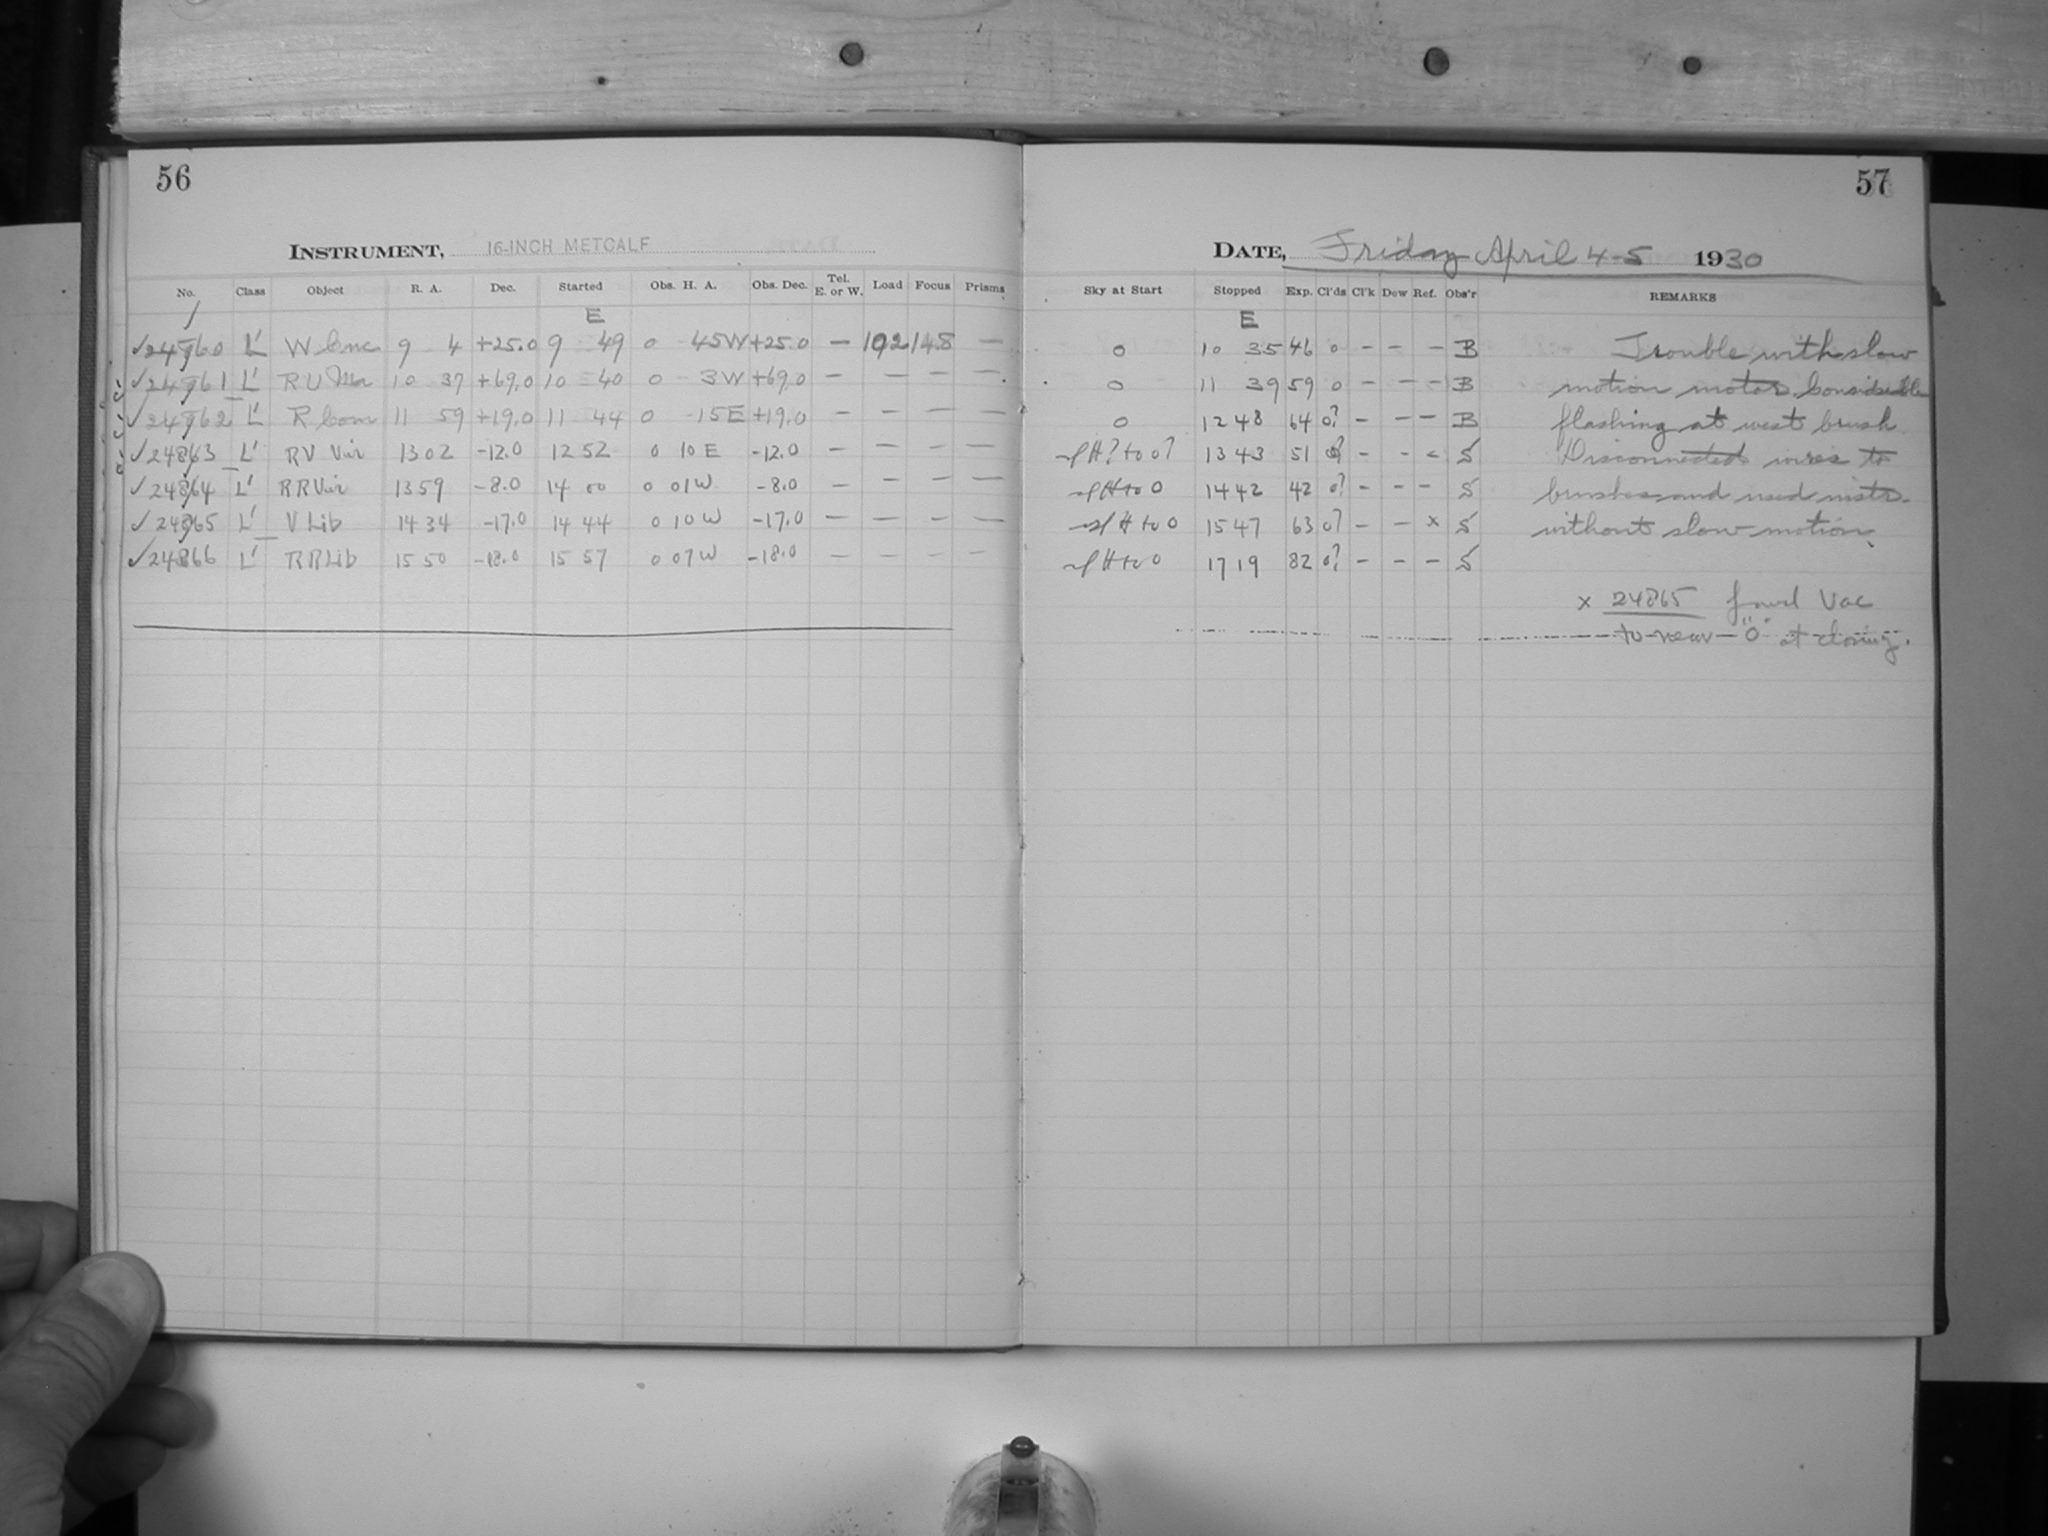 56
57
INSTRUMENT, 16-INCH METCALF
DATE, Friday April 4-5 1930
No. Class Object R. A. Dec. Started Obs. H. A. Obs. Dec. Tel. E. or W. Load Focus Prisms Sky at Start Stopped Exp. Cl'ds Cl'k Dew Ref. Obs'r REMARKS
E E
✓ 24860 L' W Cnc 9 4 +25.0 9 49 0 45W +25.0 — 102 14.8 — 0 10 35 46 0 - - - B Trouble with slow
✓ 24861 L' R U Ma 10 37 +69.0 10 40 0 3W +69.0 — — — — 0 11 39 59 0 - - - B motion motor. Considerable
✓ 24862 L' R Com 11 59 +19.0 11 44 0 15E +19.0 — — — — 0 12 48 64 0? - - - B flashing at west brush
✓ 24863 L' RV Vir 13 02 -12.0 12 52 0 10 E -12.0 — — — — H? to 0? 13 43 51 0? - - - S Disconnected wires to
✓ 24864 L' RR Vir 13 59 -8.0 14 00 0 01W -8.0 — — — — H to 0 14 42 42 0? - - - S brushes and used instr.
✓ 24865 L' V Lib 14 34 -17.0 14 44 0 10 W -17.0 — — — — H to 0 15 47 63 0? - - x S without slow motion.
✓ 24866 L' RR Lib 15 50 -18.0 15 57 0 07W -18.0 — — — — H to 0 17 19 82 0? - - - S
x 24865 found Vac
to near "0" at closing.